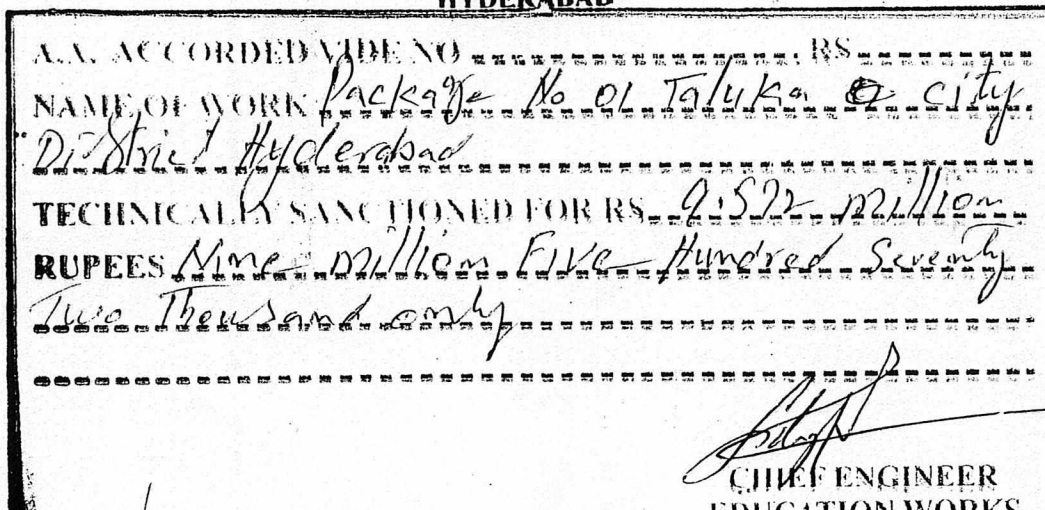 HYDERABAD
A.A. ACCORDED VIDE NO RS
NAME OF WORK Package No 01 Taluka city
District Hyderabad
TECHNICALLY SANCTIONED FOR RS. 9.572 million
RUPEES Nine million Five Hundred Seventy
Two Thousand only
CHIEF ENGINEER
EDUCATION WORKS